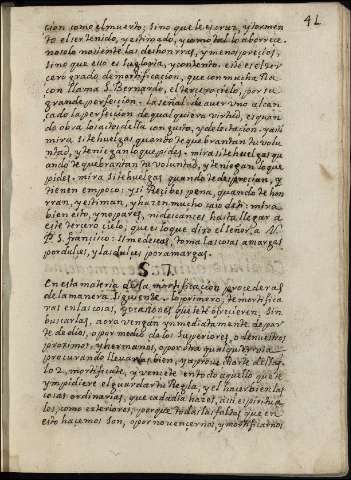 41
cion como el muerto; sino que le es cruz, y tormen
to el ser tenido, y estimado, y como tal lo aborrece.
no solo no siente las deshonrras, y menosprecios,
sino que esso es su gloria, y contento. este es el ter
cero grado de mortificacion, que con mucha Ra
çon llama S. Bernardo, el tercero cielo, por su
grande perfeccion. La señal de aver uno alcan
çado la perfeccion de qualquiera virtud, es quan
do obra los actos della con gusto, y delectacion. y assi
mira si te huelgas quando te quebrantan tu volu
ntad, y te niegan lo que pides. mira si te huelgas qu
ando te quebrantan tu voluntad, y te niegan lo que
pides. mira si te huelgas quando te desprecian, y
tienen en poco: y si Recibes pena, quando te hon
rran, y estiman, y hazen mucho caso de ti: mira
bien esto, y no pares, ni descances hasta llegar a
este tercero cielo, que es lo que dixo el señor a N.
P. S. francisco: si me deseas, toma las cosas amargas
por dulces, y las dulces por amargas.
En esta materia de la mortificacion procederas
de la manera siguiente. Lo primero, te mortifica
ras en las cosas, y ocasiones que se te ofrecieren, sin
buscarlas, aora vengan ynmediatamente de par
te de dios, o por medio de los superiores, o de nuestros
proximos, y hermanos, o por otra qualquier via
procurando llevarlas bien, y aprovecharte dellas.
Lo 2, mortificate, y vencete en todo aquello que te
ympidiere el guardar tu Regla, y el hacer bien las
cosas ordinarias, que cada dia hazes, assi espiritua
les, como exteriores; porque todas las faltas que en
esto hacemos son, o por no vencernos, y mortificarnos